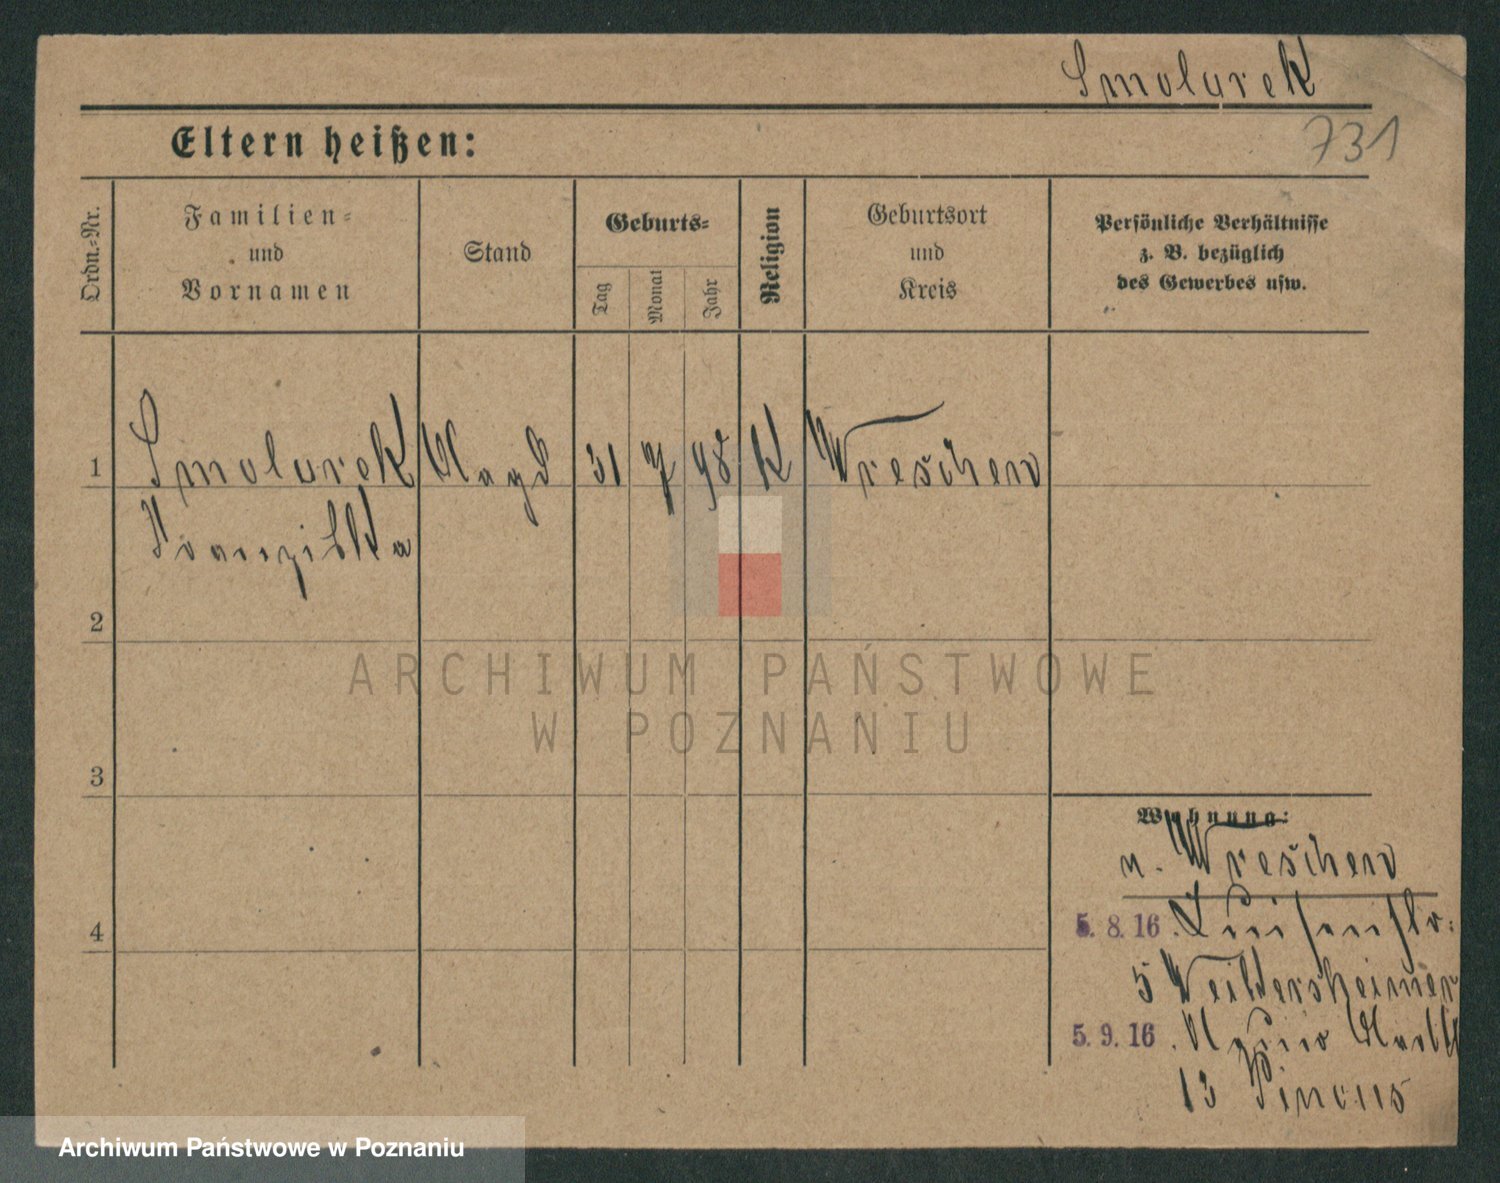 Smolarek
731
Eltern heißen:
Ordn.-Nr.
Familien-
und
Vornamen
Stand
Geburts-
Tag
Monat
Jahr
Religion
Geburtsort
und
Kreis
Persönliche Verhältnisse
z. B. bezüglich
des Gewerbes usw.
1 Smolarek Magd 31 7 98 K Wreschen
Franziska
2
3
4
ARCHIWUM PAŃSTWOWE
W POZNANIU
Wohnung:
n. Wreschen
5. 8. 16. Luisenstr.
5
5. 9. 16.
13 Pincus
Archiwum Państwowe w Poznaniu